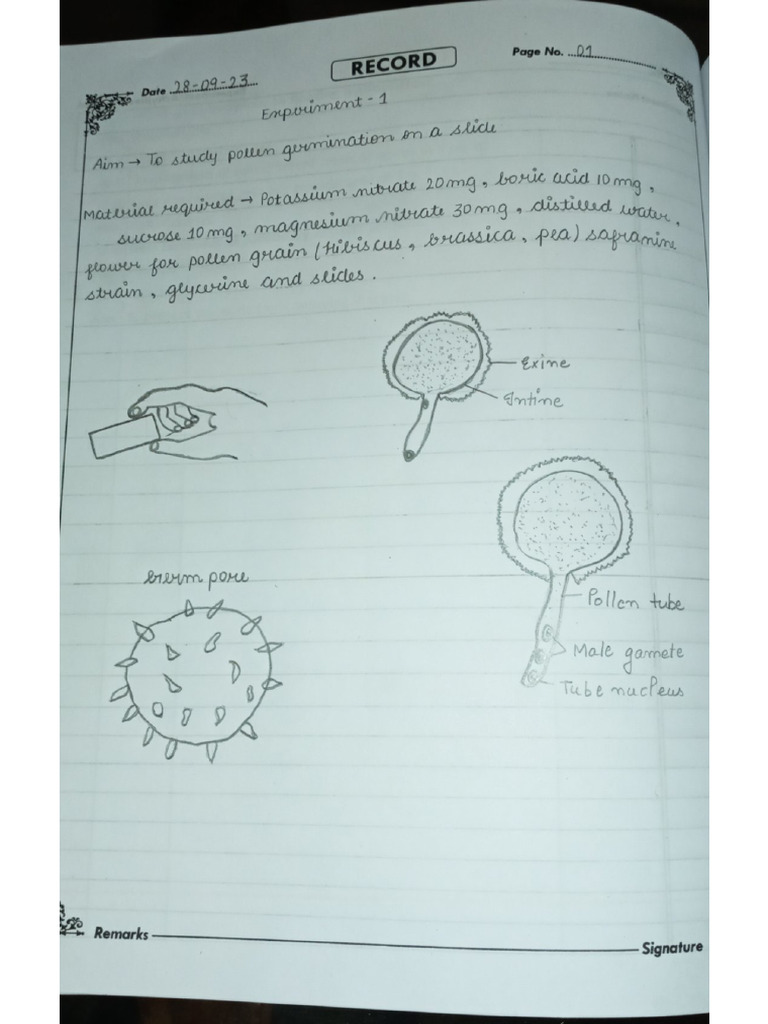 RECORD
Page No. 01
Date 28-09-23
Experiment - 1
Aim → To study pollen germination on a slide
Material required → Potassium nitrate 20 mg, boric acid 10 mg,
sucrose 10 mg, magnesium nitrate 30 mg, distilled water,
flower for pollen grain (Hibiscus, brassica, pea) safranine
strain, glycerine and slides.
Exine
Intine
Germ pore
Pollen tube
Male gamete
Tube nucleus
Remarks
Signature